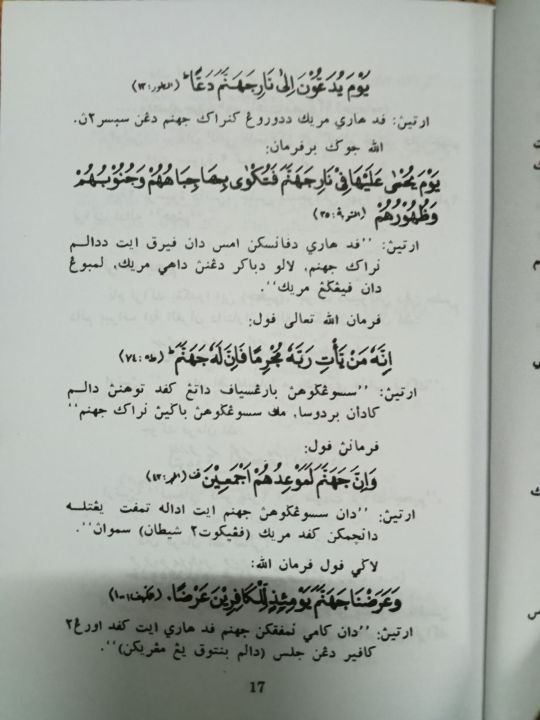 يَوْمَ يُدَعُّوْنَ اِلٰى نَارِ جَهَنَّمَ دَعًّا ؕ (الطور: ١٣)
ارتيڽ: فد هاري مريك ددوروڠ كنراك جهنم دڠن سبسر٢ن.
الله جوݢ برفرمان:
يَوْمَ يُحْمٰى عَلَيْهَا فِيْ نَارِ جَهَنَّمَ فَتُكْوٰى بِهَا جِبَاهُهُمْ وَجُنُوْبُهُمْ
وَظُهُوْرُهُمْ (التوبة: ٣٥)
ارتيڽ: ''فد هاري دفانسكن امس دان فيرق ايت ددالم
نراك جهنم, لالو دباكر دڠنڽ داهي مريك, لمبوڠ
دان فيڠݢڠ مريك''.
فرمان الله تعالى فول:
اِنَّهٗ مَنْ يَّأْتِ رَبَّهٗ مُجْرِمًا فَاِنَّ لَهٗ جَهَنَّمَ ؕ (طه: ٧٤)
ارتيڽ: ''سسوڠݢوهڽ بارڠسياف داتڠ كفد توهنڽ دالم
كادأن بردوسا, مك سسوڠݢوهڽ باݢيڽ نراك جهنم''
فرمانڽ فول:
وَاِنَّ جَهَنَّمَ لَمَوْعِدُهُمْ اَجْمَعِيْنَ ۗ (الحجر: ٤٣)
ارتيڽ: ''دان سسوڠݢوهڽ جهنم ايت اداله تمفت يڠتله
دانچمكن كفد مريك (فڠيكوت٢ شيطان) سموان''.
لاݢي فول فرمان الله:
وَعَرَضْنَا جَهَنَّمَ يَوْمَئِذٍ لِّلْكَافِرِيْنَ عَرْضًا. (الكهف: ١٠٠)
ارتيڽ: ''دان كامي نمفقكن جهنم فد هاري ايت كفد اورڠ٢
كافير دڠن جلس (دالم بنتوق يڠ مڠريكن)''.
17